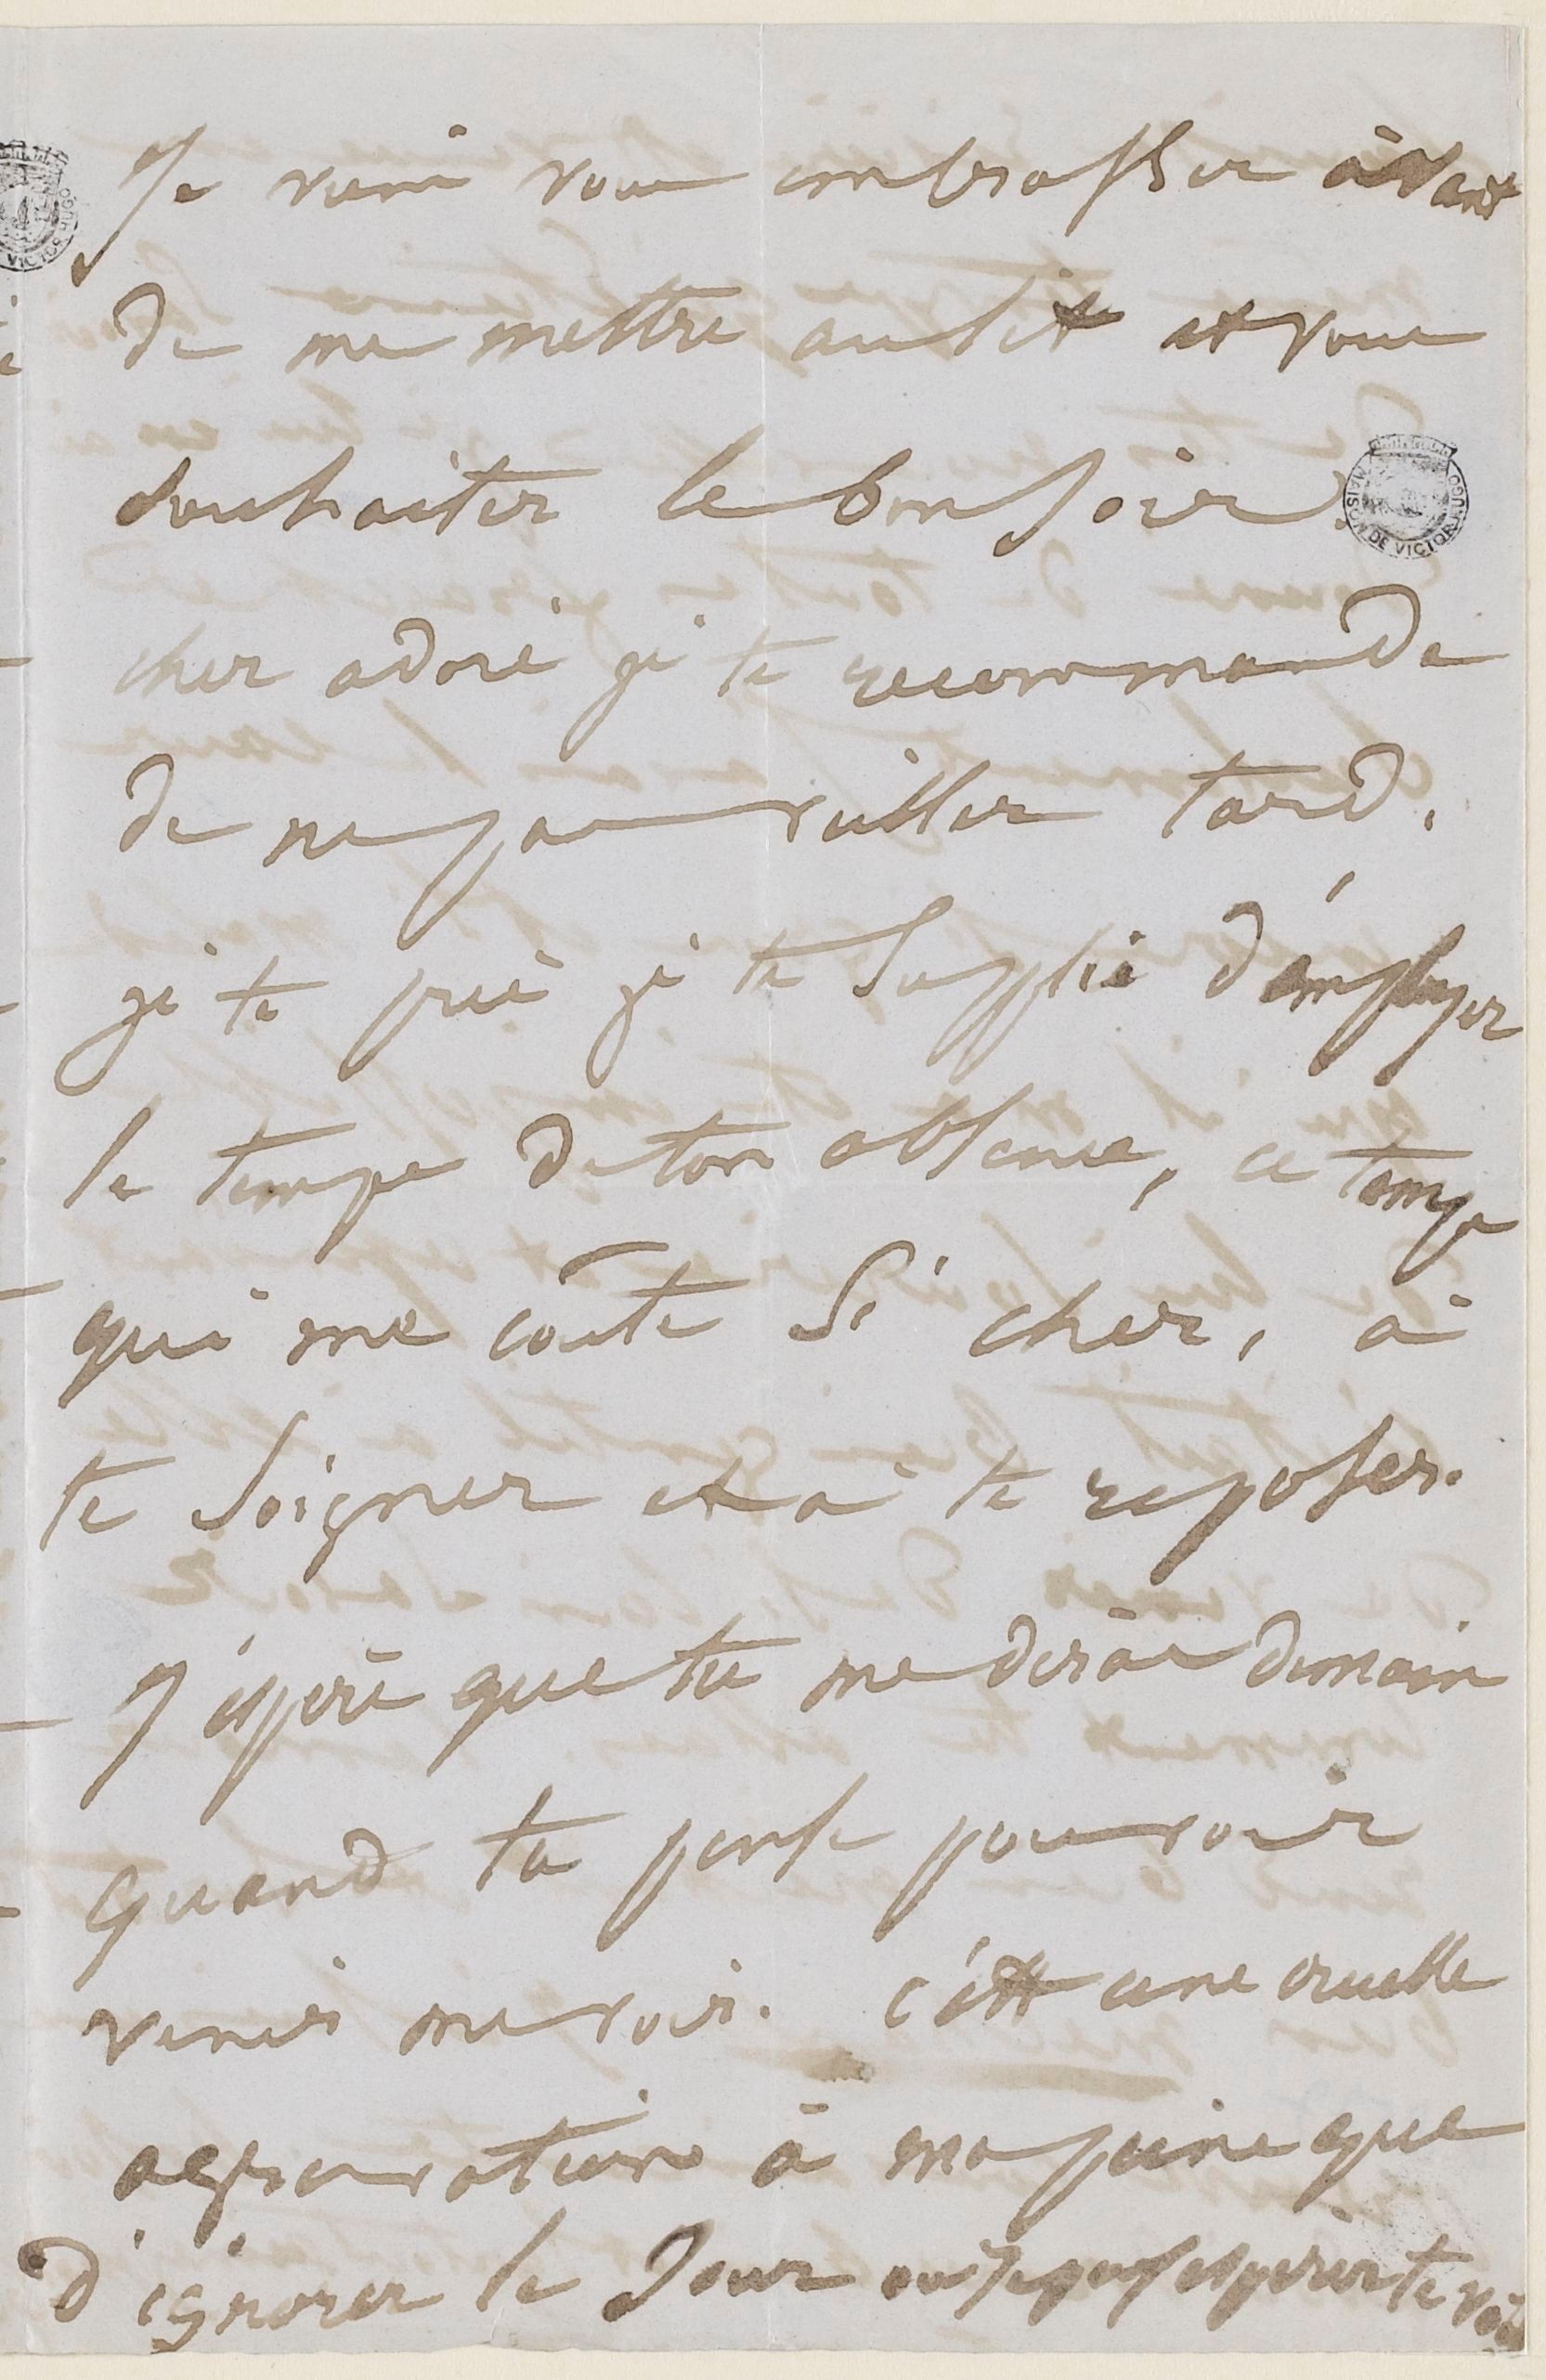 Je viens vous embrasser avant
de me mettre au lit et vous
souhaiter le bonsoir.
cher adoré je te recommande
de ne pas veiller tard.
je te prie je te supplie d'employer
le temps de ton absence, ce temps
qui me coûte si cher, à
te soigner et à te reposer.
J'espère que tu me diras demain
quand tu pense pouvoir
venir me voir. c'est une cruelle
aggravation à ma peine que
d'ignorer le Jour où je puis espérer te voir
MAISON DE VICTOR HUGO
VICTOR HUGO